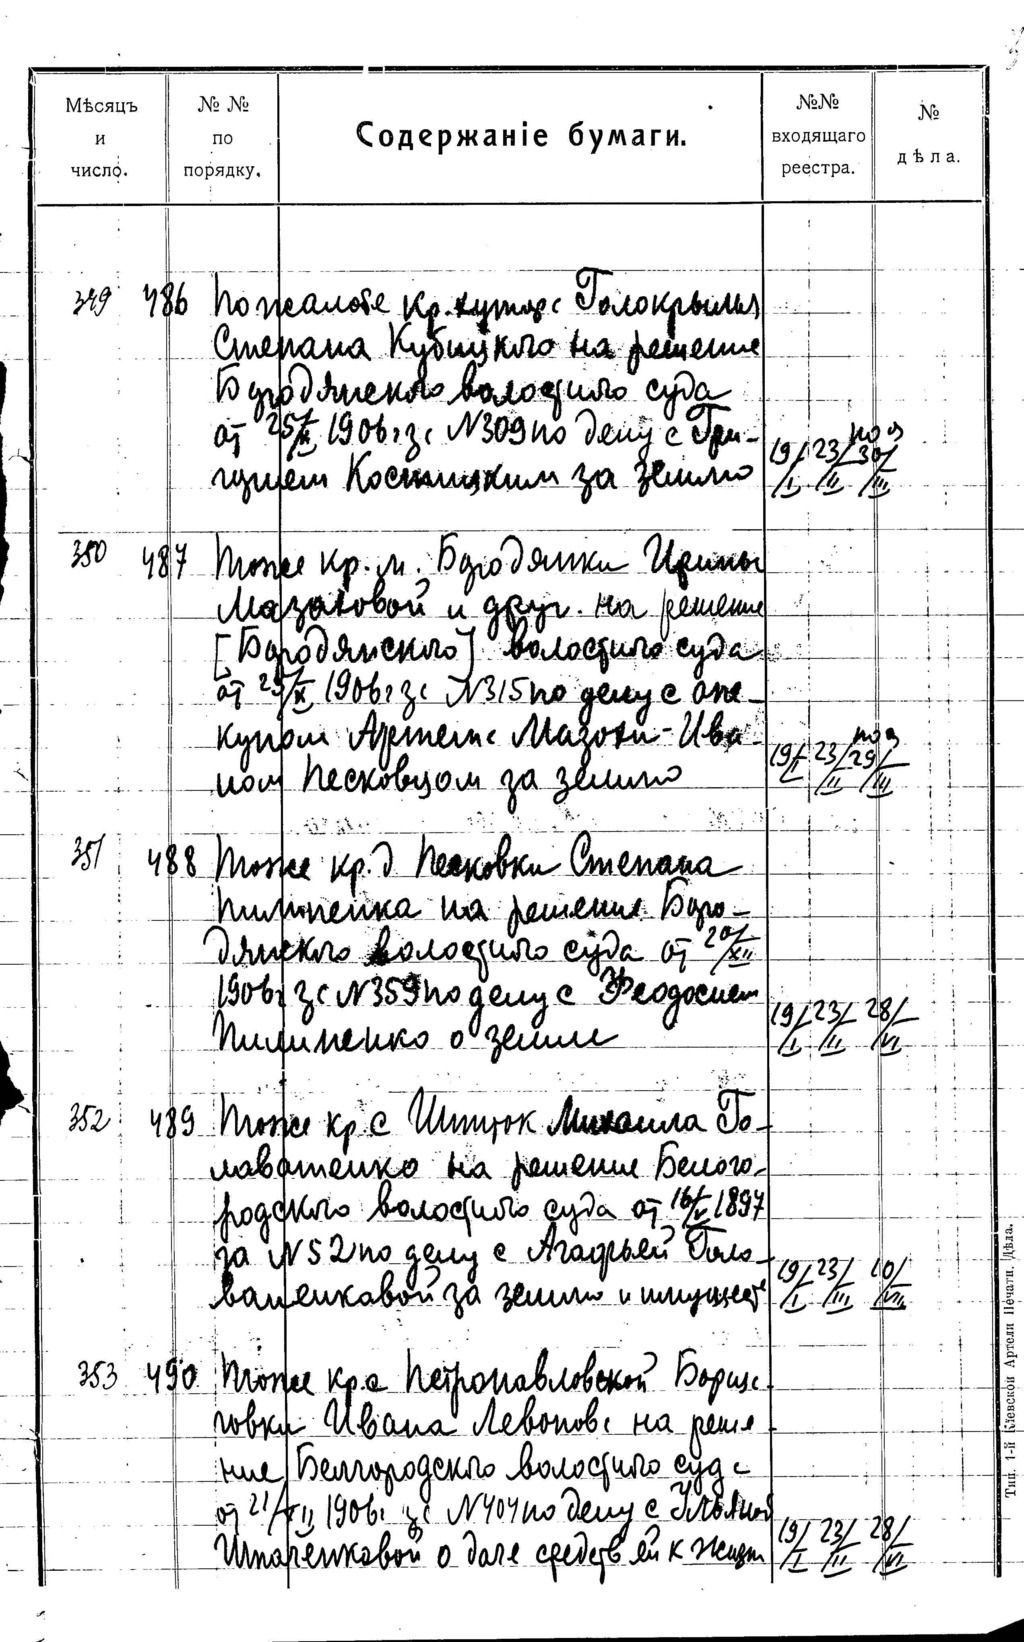 Мѣсяцъ и число.
№ № по порядку.
Содержаніе бумаги.
№№ входящаго реестра.
№ дѣла.
349 486 По жалобе кр. хутор Голокрылы
Степана Кубицкаго на решение
Бородянскаго волостного суда
от 25/XI 1906 г за №309 по делу с Гри-
горием за землю
19/I 23/II 30/III
350 487 Тоже кр. м. Бородянки Ирины
Мазаховой и друг. на решение
[Бородянского] волостного суда
от 25/XI 1906 г за №315 по делу с опе-
куном Артема Мазохи - Ива-
ном Песковцом за землю
19/I 23/II 29/III
351 488 Тоже кр. д Песковки Степана
Пилипенка на решение Боро-
дянского волостного суда от 20/XII
1906 г за №359 по делу с Феодосием
Пилипенко о земле
19/I 23/II 28/VI
352 489 Тоже кр с Михаила Го-
ловатенко на решение Белого-
родского волостного суда от 16/V 1897
за №52 по делу с Агафьей Голо-
ваненковой за землю и имущест
19/I 23/III 10/VII
353 490 Тоже кр с Петропавловской Борща-
говки Ивана Левонов на реше-
ние Белгородского волостного суда
от 21/XII 1906 г за №404 по делу с Ульяной
о даче средств ей к жизни
19/I 23/II 28/VI
Тип. 1-й Кіевской Артели Печатн. Дѣла.